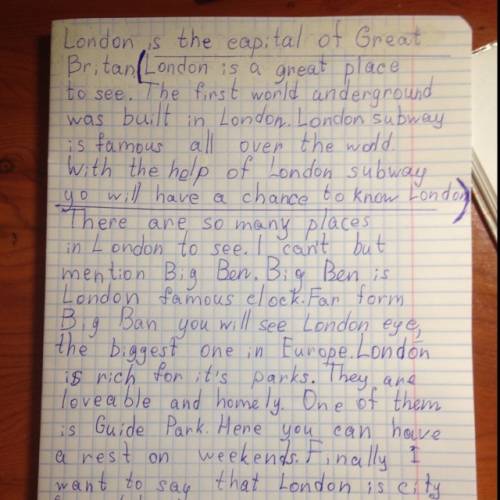 London is the capital of Great
Britan(London is a great place
to see. The first world anderground
was built in London. London subway
is famous all over the world.
With the holp of London subway
yo will have a chance to know London)
There are so many places
in London to see. I can't but
mention Big Ben. Big Ben is
London famous clock. Far form
Big Ban you will see London eye,
the biggest one in Europe. London
is rich for it's parks. They are
loveable and homely. One of them
is Guide Park. Here you can have
a rest on weekends. Finally I
want to say that London is city